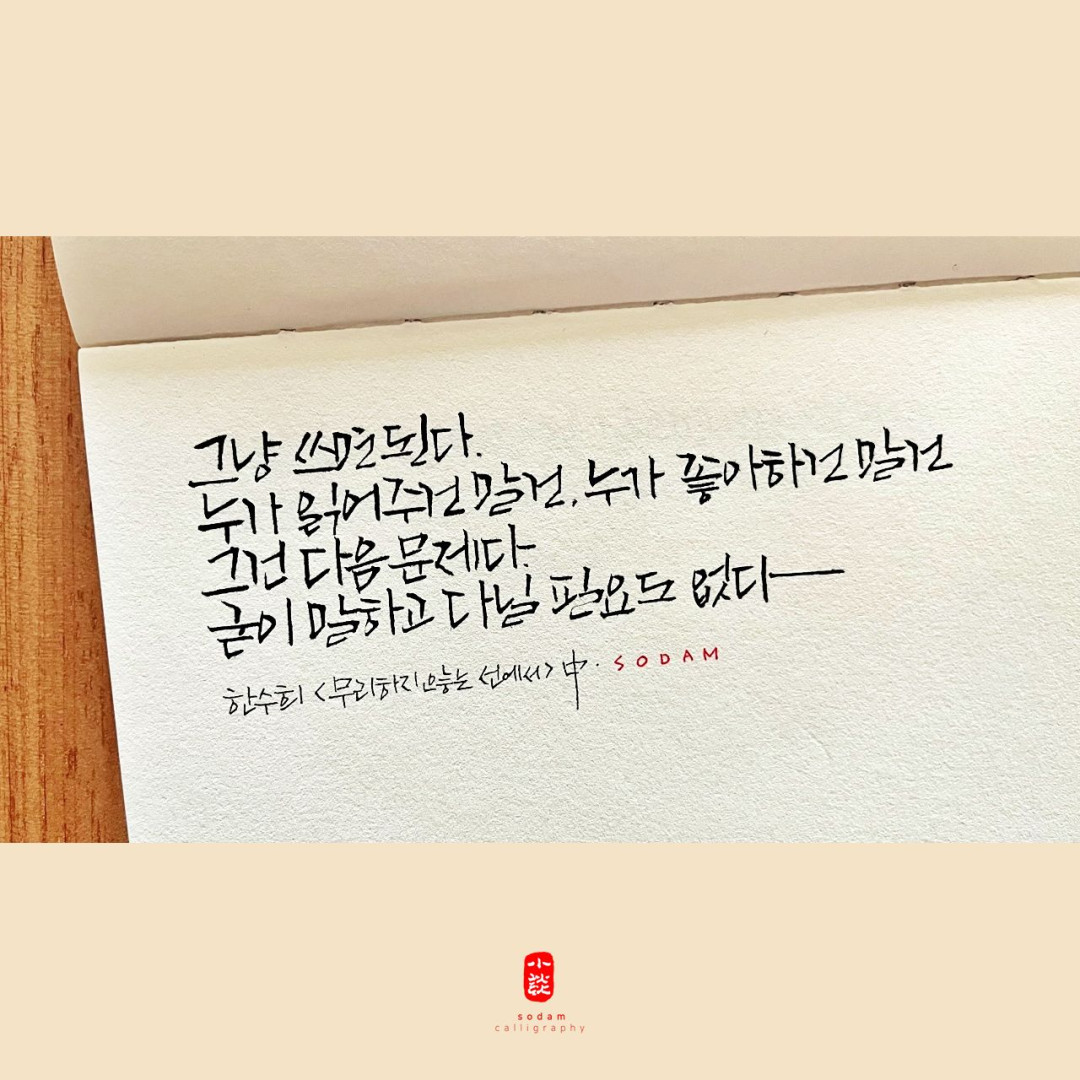 그냥 쓰면 된다.
누가 읽어주건 말건, 누가 좋아하건 말건
그건 다음 문제다.
굳이 말하고 다닐 필요도 없다
한수희 <무리하지 않는 선에서> 中. SODAM
小談
sodam
calligraphy